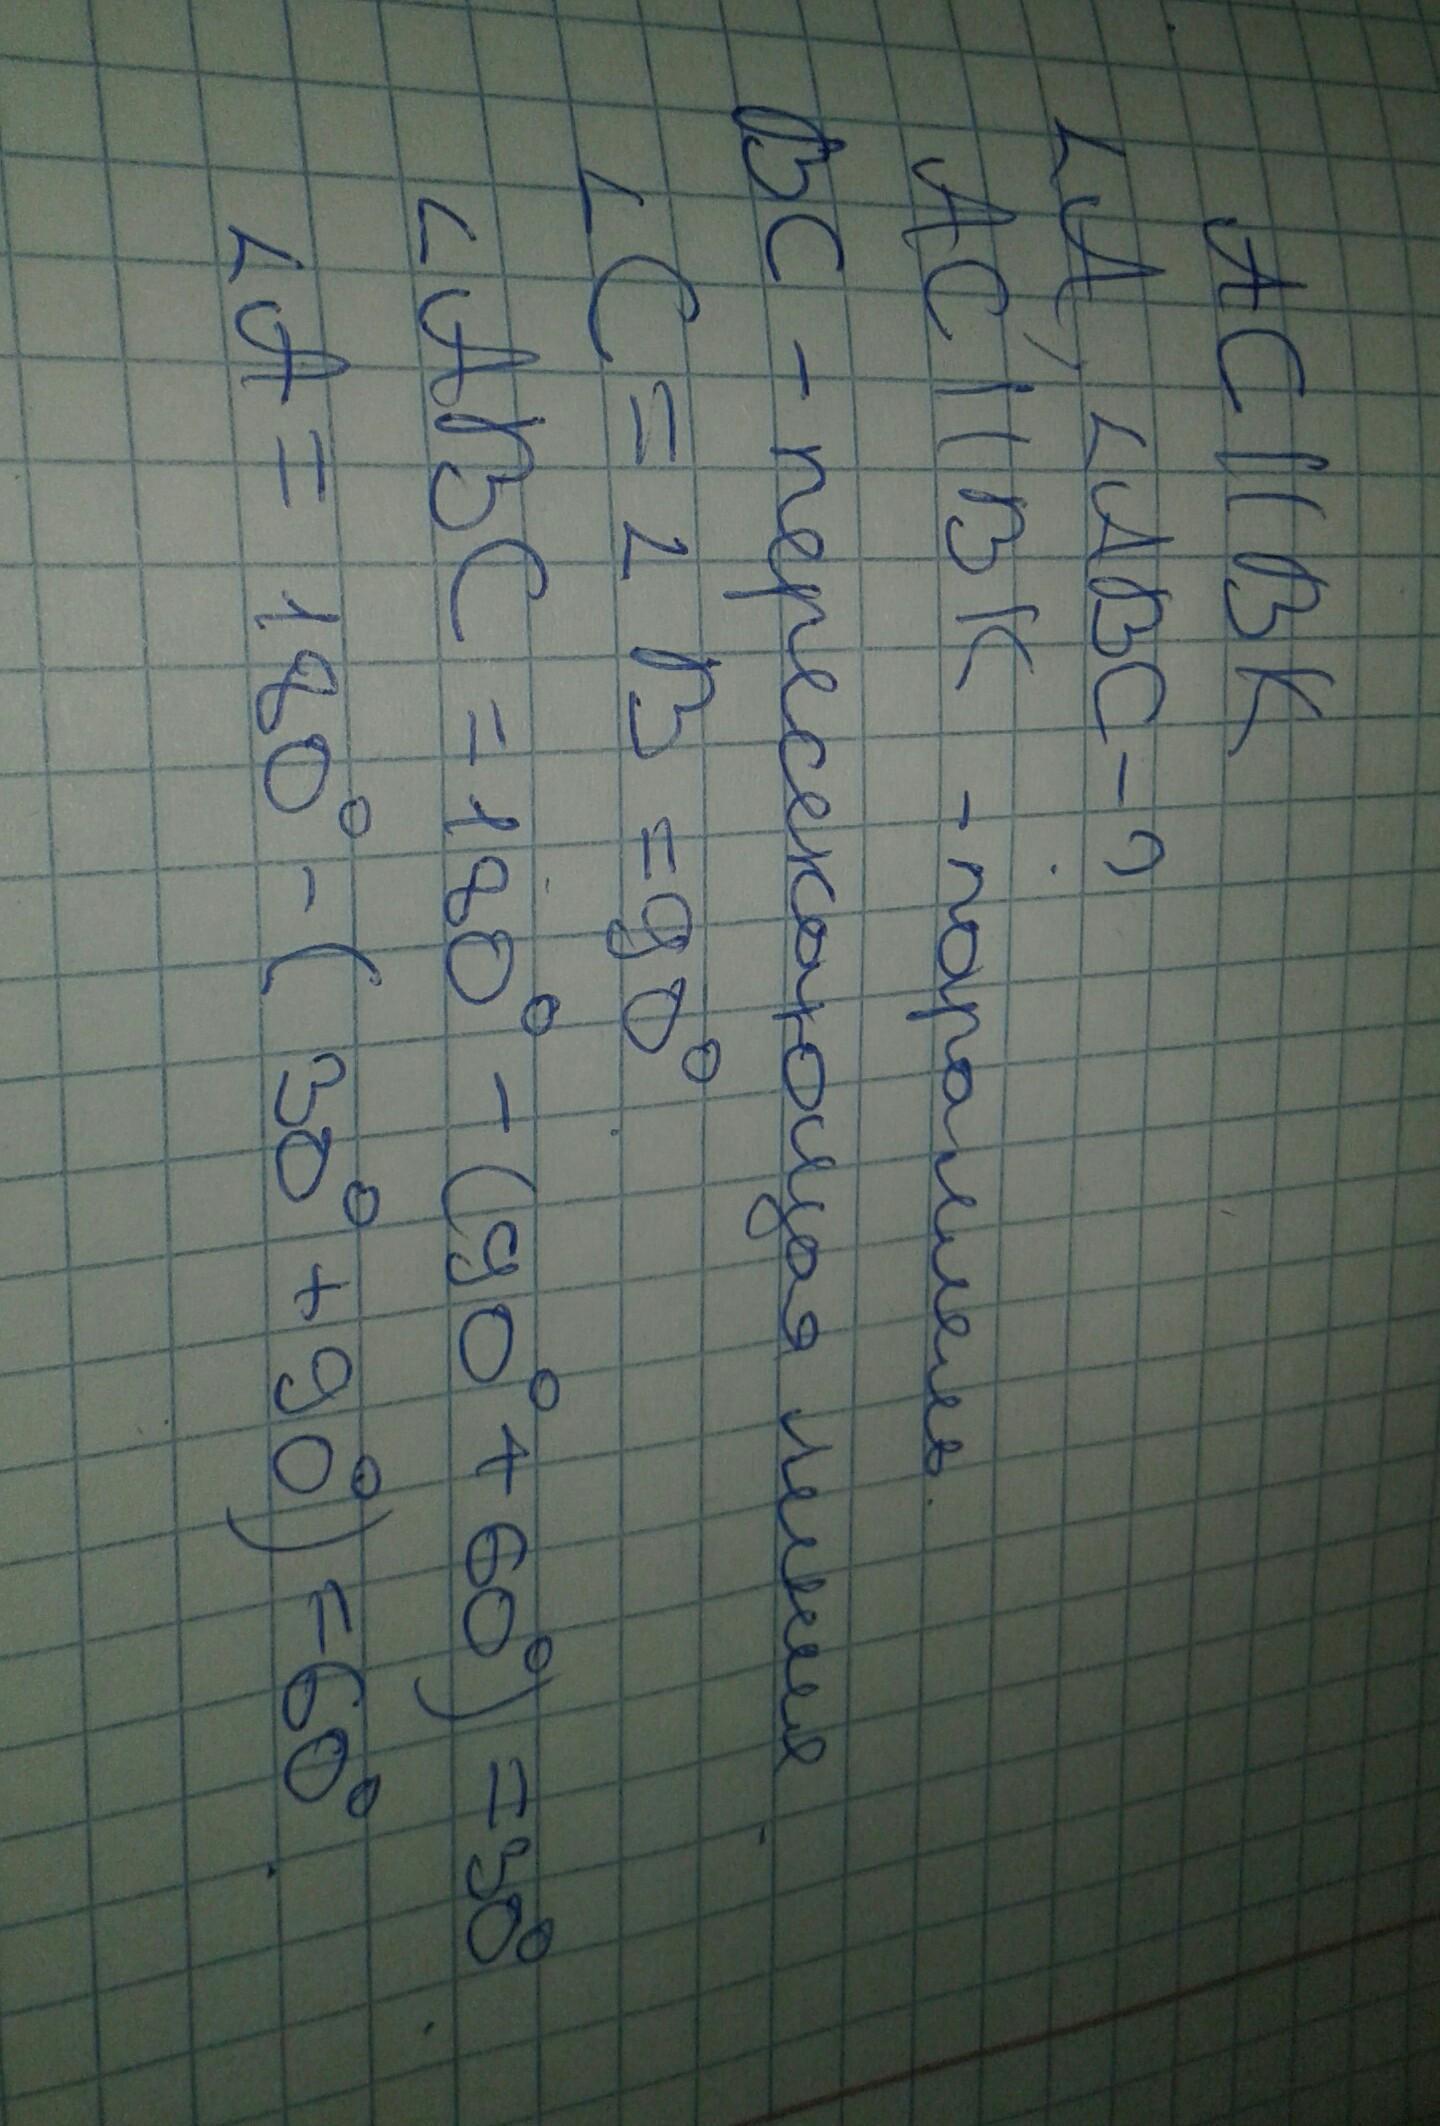 AC || BK
∠A, ∠ABC - ?
AC || BK - паралель.
BC - пересекающая линия
∠C = ∠B = 90°
∠ABC = 180° - (90° + 60°) = 30°
∠A = 180° - (30° + 90°) = 60°